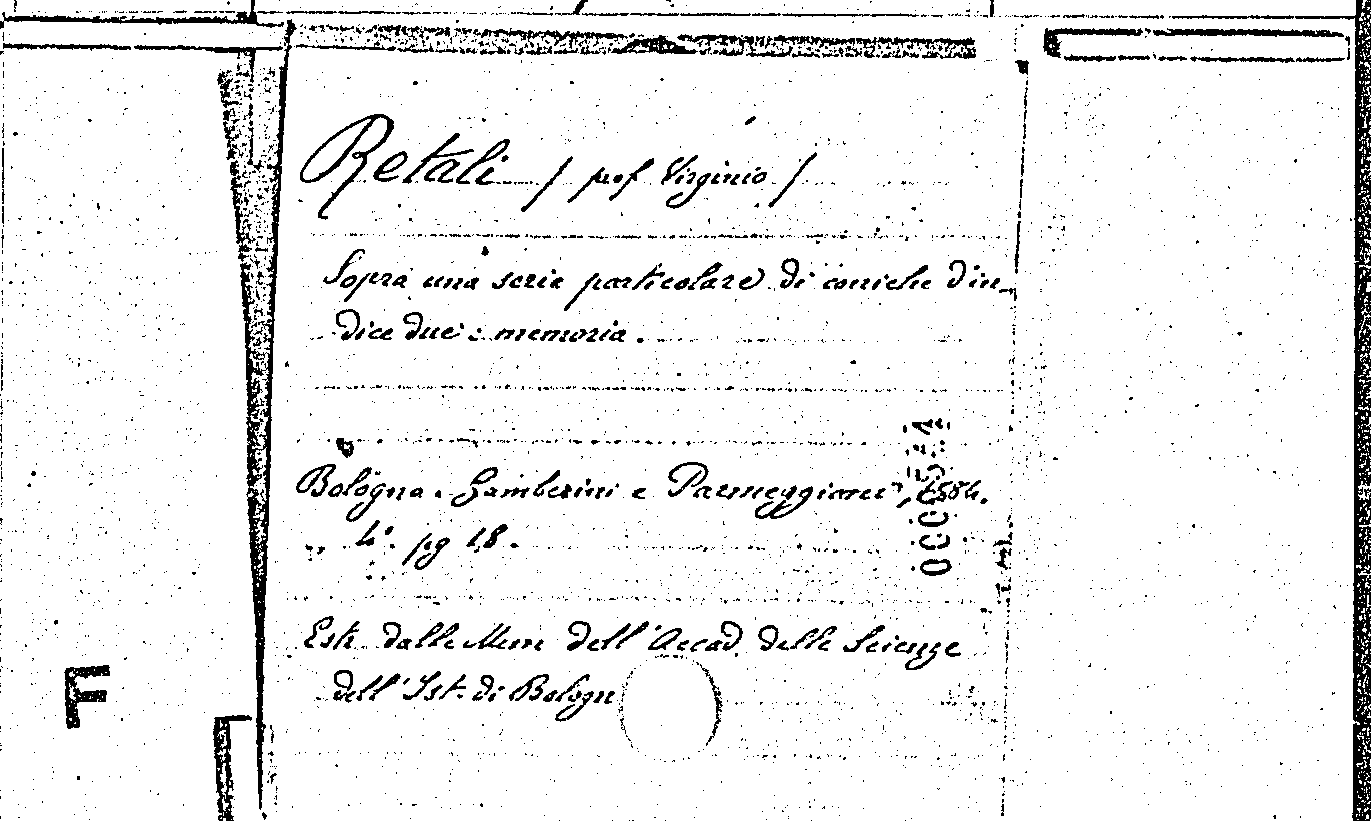 Retali / prof Virginio /
Sopra una serie particolare di coniche d'in-
dice due: memoria.
Bologna. Gamberini e Parmeggiani, 1884.
4°. pg 18.
Estr. dalle Mem dell'Accad. delle Scienze
dell'Ist. di Bologn
F